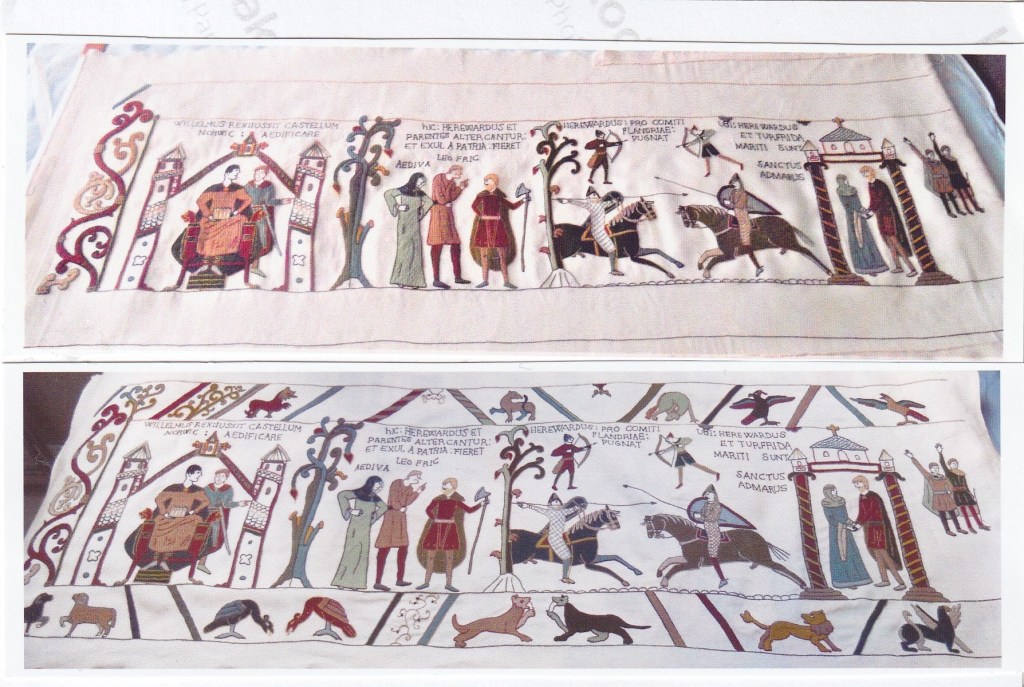 WILLELMUS REX IUSSIT CASTELLUM
NORWIC : AEDIFICARE
hIC: HEREWARDUS ET
PARENTES ALTERCANTUR:
ET EXUL A PATRIA: FIERET
LEO FRIC
AEDIVA
HEREWARDUS: PRO COMITI
FLANDRIAE:
PUGNAT
UBI: HEREWARDUS
ET TURFRIDA
MARITI SUNT
SANCTUS
ADMARUS
WILLELMUS REX IUSSIT CASTELLUM
NORWIC : AEDIFICARE
hIC: HEREWARDUS ET
PARENTES ALTERCANTUR:
ET EXUL A PATRIA: FIERET
LEO FRIC
AEDIVA
HEREWARDUS: PRO COMITI
FLANDRIAE:
PUGNAT
UBI: HEREWARDUS
ET TURFRIDA
MARITI SUNT
SANCTUS
ADMARUS